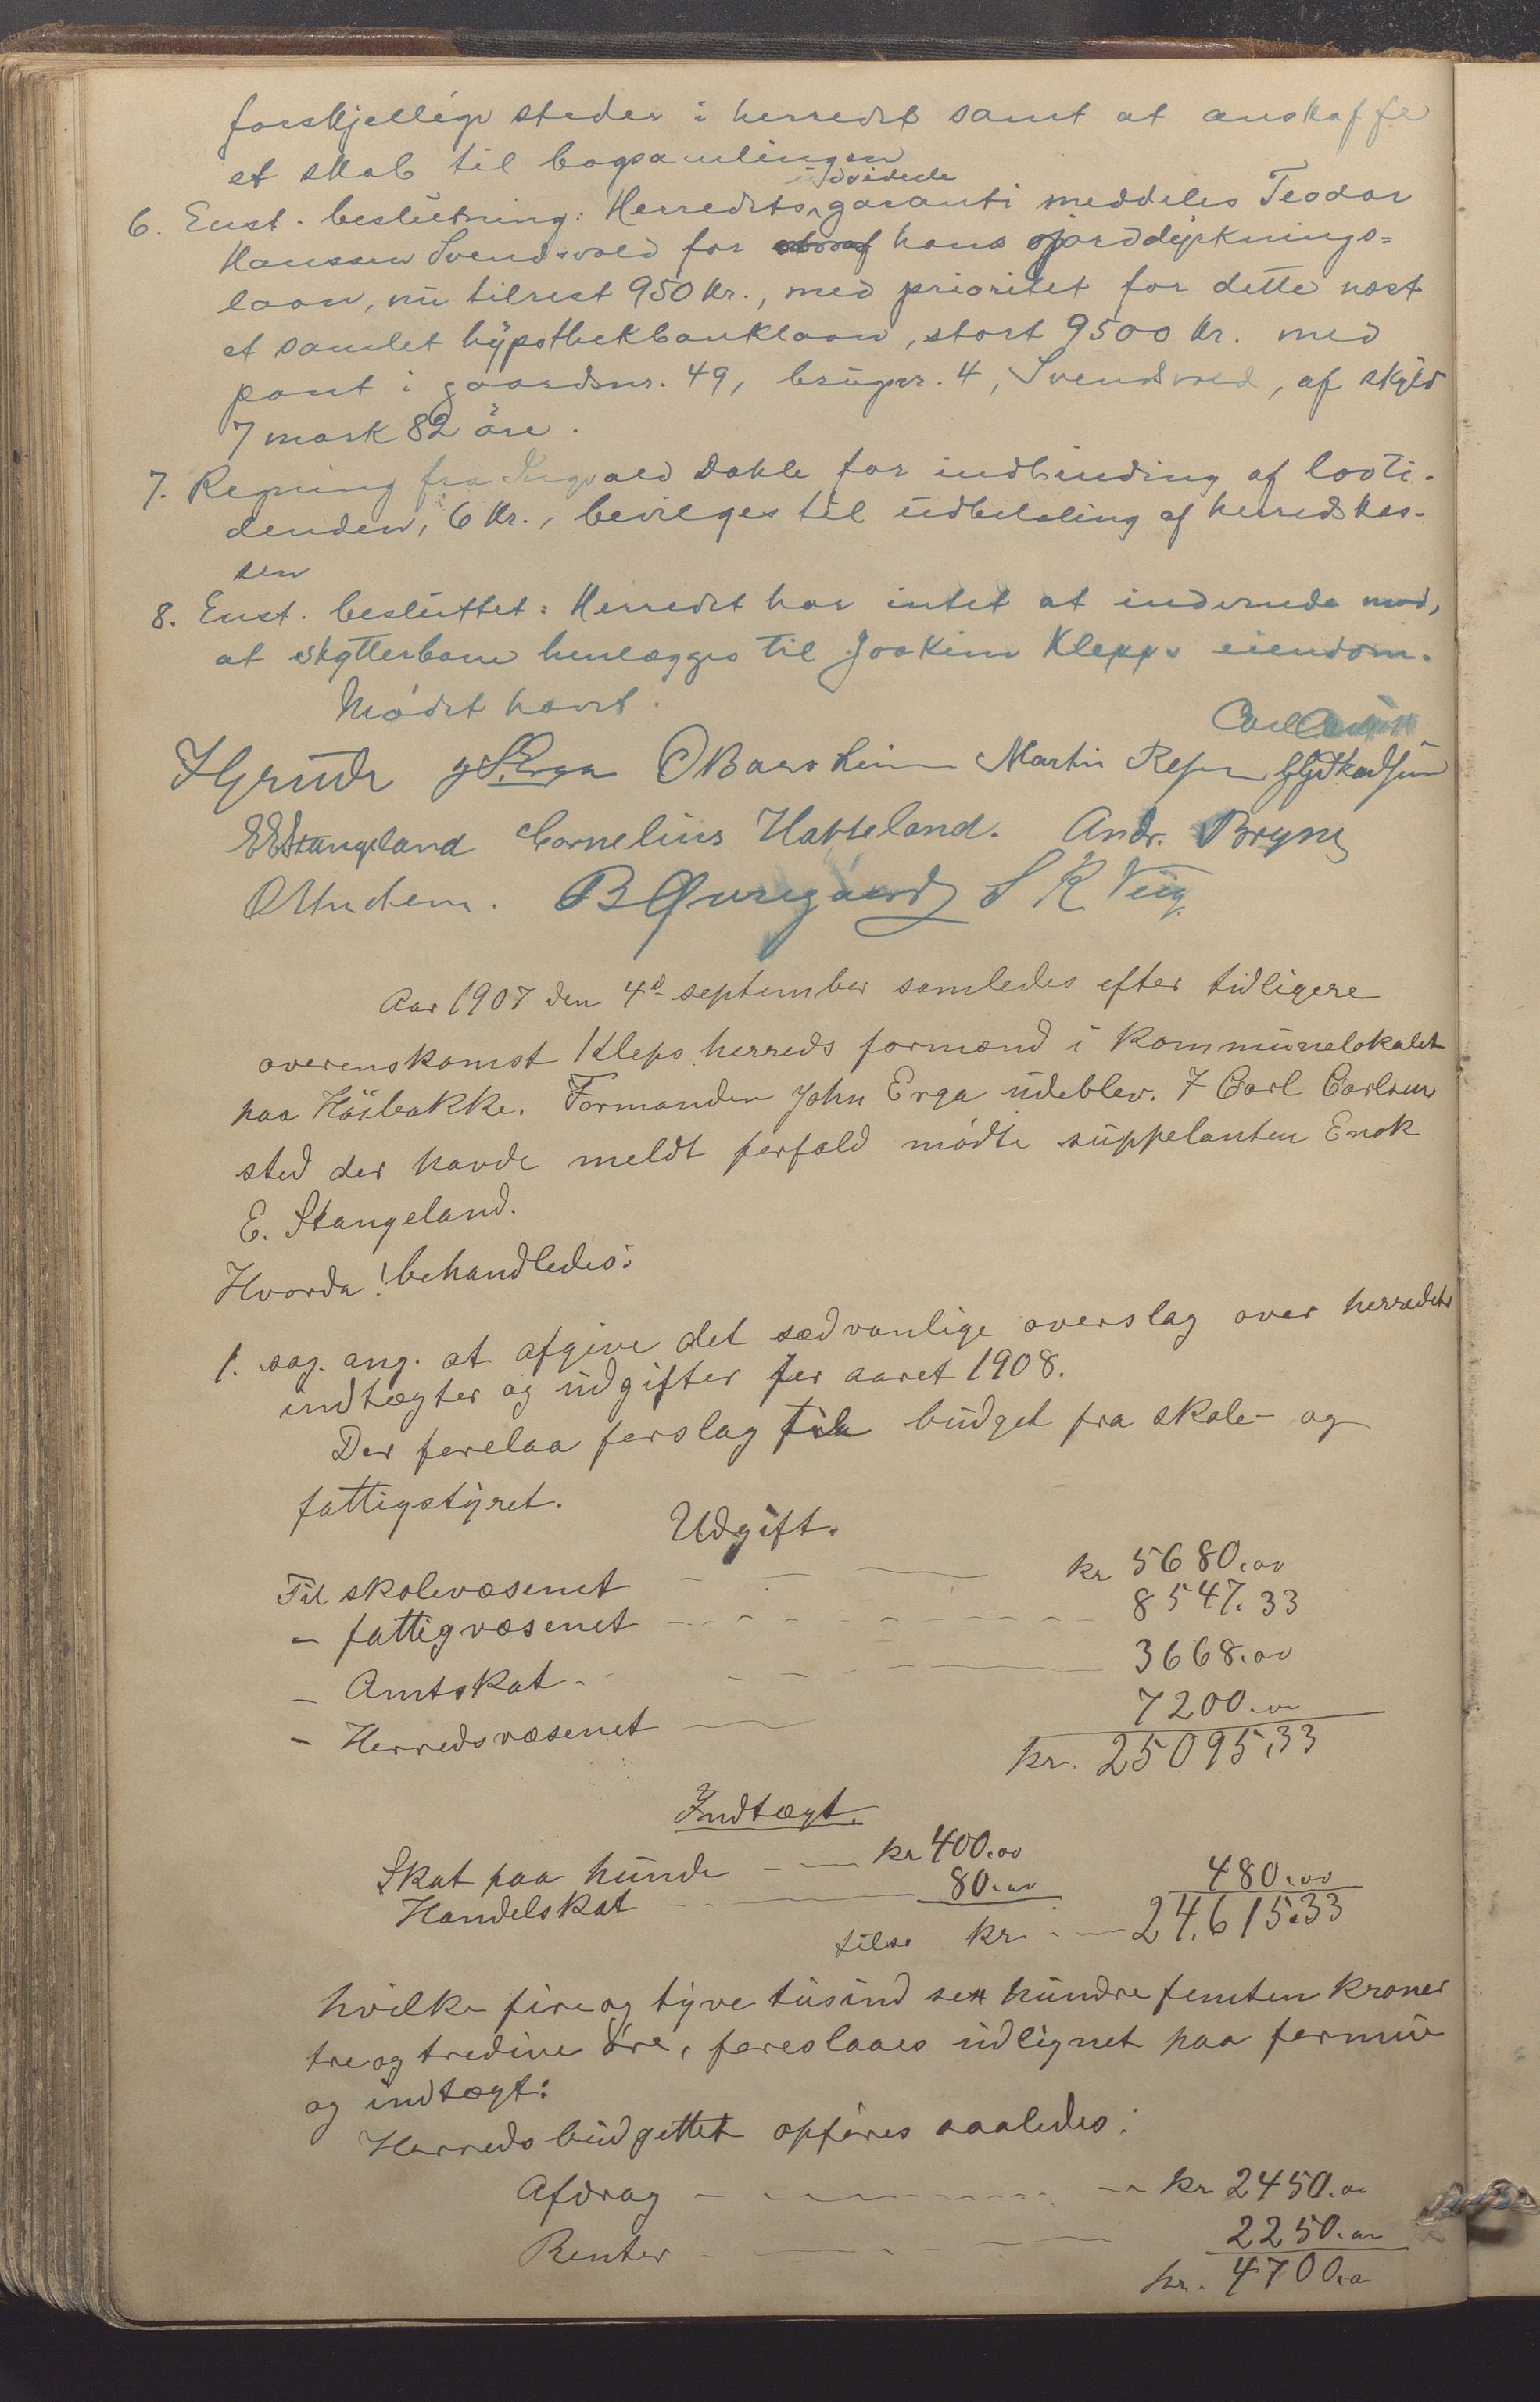 forskjellige steder i herredet samt at anskaffe
et skab til bogsamlingen
6. Enst. beslutning: Herredets udvidede garanti meddeles Teodor
Hanssen Svendsvold for hans jorddyrknings=
laan, nu tilrest 950 kr., med prioritet for dette næst
et samlet hypothekbanklaan, stort 9500 kr. med
pant i gaardsnr. 49, brugsnr. 4, Svendsvold, af skyld
7 mark 82 øre.
7. Regning fra Ingvald Dahle for indbinding af lovti-
denden, 6 kr., bevilges til udbetaling af herredskas-
sen
8. Enst. besluttet: Herredet har intet at indvende mod,
at skytterbane henlægges til Joakim Klepps eiendom.
Mødet hævet.
Carl
J Grude J. S. Erga Martin
E E Stangeland Cornelius Hakteland. Andr. Bryne
B Øvregaard S R Tüg
Aar 1907 den 4de september samledes efter tidligere
overenskomst Kleps herreds formænd i kommunelokalet
paa Höibakke. Formanden John Erga udeblev. I Carl Carlsens
sted der havde meldt forfald mödte suppelanten Enok
E. Stangeland.
Hvorda! behandledes:
1. sag. ang. at afgive det sædvanlige overslag over herredets
indtægter og udgifter for aaret 1908.
Der forelaa forslag til budget fra skole- og
fattigstyret.
Udgift.
Til skolevæsenet - - - kr 5680.00
- fattigvæsenet - - - 8547.33
- Amtskat - - - 3668.00
- Herredsvæsenet - - 7200.00
kr. 25095,33
Indtægt.
Skat paa hunde - - kr 400.00
Handelskat - - 80.00 480.00
tils. kr. - 24.615.33
hvilke fire og tyve tusind sex hundre femten kroner
tre og tredive øre, foreslaaes udlignet paa formue
og indtægt:
Herredsbudgettet opføres saaledes:
Afdrag - - - kr 2450.00
Renter - - - 2250.00
kr. 4700.00